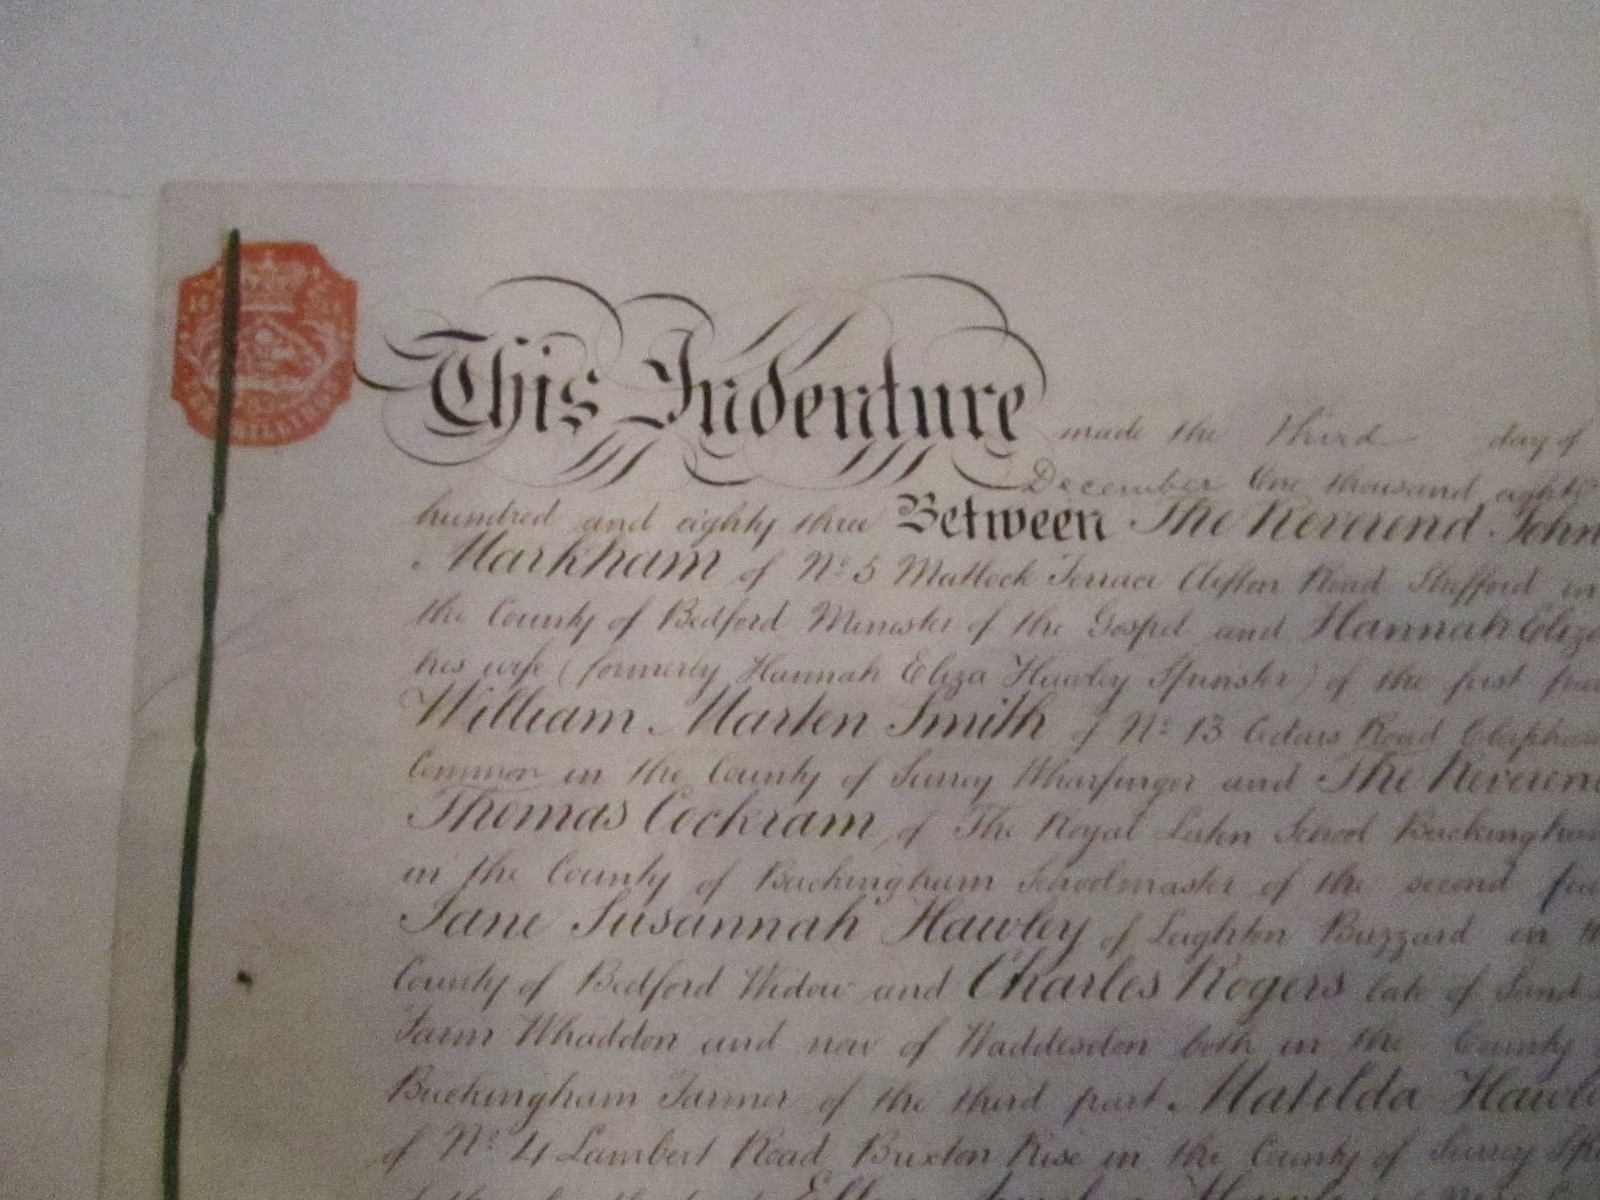 This Indenture made the third day of
December One thousand eight
hundred and eighty three Between The Reverend John
Markham of No. 5 Matlock Terrace Clifton Road Shefford in
the County of Bedford Minister of the Gospel and Hannah Eliza
his wife (formerly Hannah Eliza Hawley Spinster) of the first
William Marten Smith of No. 13 Cedars Road Clapham
Common in the County of Surrey Wharfinger and The Reverend
Thomas Cockram of The Royal Latin School Buckingham
in the County of Buckingham Schoolmaster of the second
Jane Susannah Hawley of Leighton Buzzard in
County of Bedford Widow and Charles Rogers late of
Farm Whaddon and now of Waddesdon both in the County
Buckingham Farmer of the third part Matilda Hawle
of No. 4 Lambert Road Brixton Rise in the County of Surrey